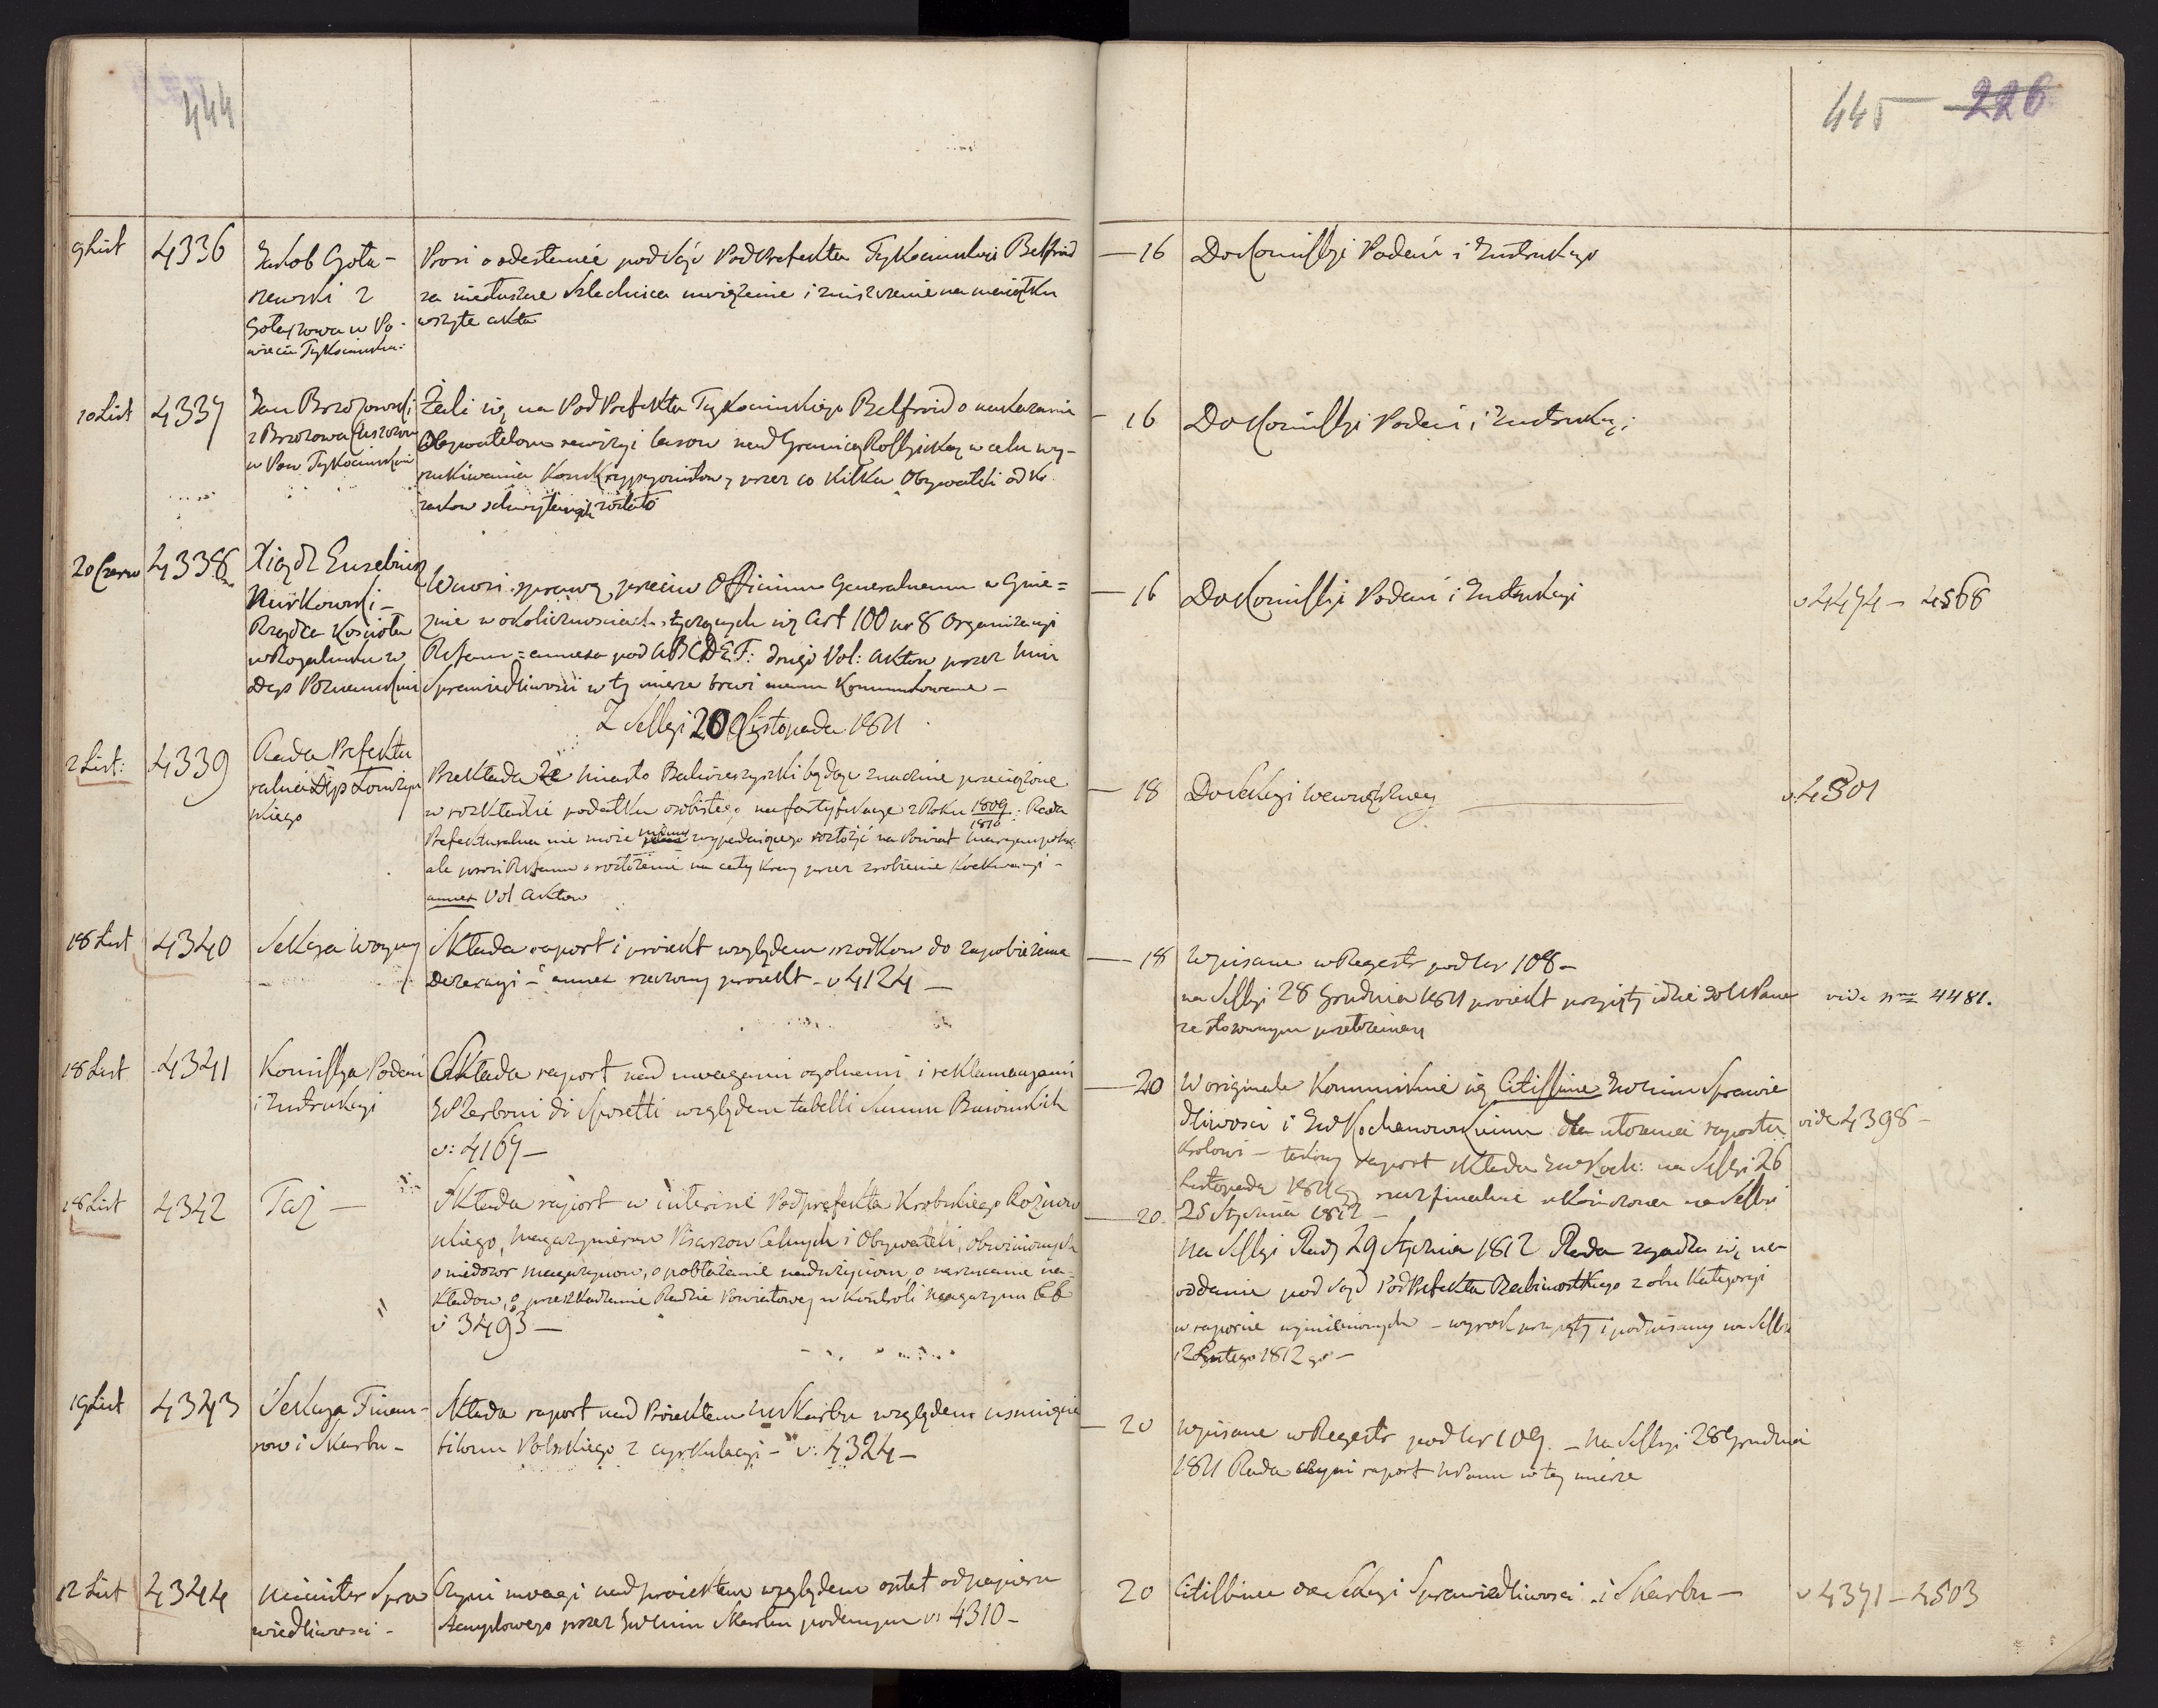 444
9 List 4336 Jakob Goła-
szewski z
Gołaszowa w Po-
wiecie Tykocinskm:
Prosi o odesłanie pod Sąd PodPrefekta Tykocinskiego Belfroid
za niesłuszne Szlachcica uwięzienie i zniszczenie na maiątku
wszyte akta
— 16 Do Kommissyi Podań i Instrukcyi
10 List 4337 Jan Brzozowski
z Brzozowa
w Pow Tykocinskim
Żali się na PodPrefekta Tykocinskiego Belfroid o nakazanie
Obywatelom rewizyi lasow nad Granicą Rossyiską w celu wy-
szukiwania Konskrypcyonistow, przez co kilku Obywateli od Ko-
zakow schwytanych zostało
— 16 Do Kommissyi Podań i Instrukcyi
20 Czerw 4338 Xiądz Euzebiusz
Kurkowski —
Rządca Kościoła
w Rogalinku w
Dep Poznanskim
Wnosi sprawę przeciw Officium Generalnemu w Gnie=
znie w okolicznościach styczących się Art 100 nr 8 Organizacyi
annexa pod ABCDEF: drugie Vol: Aktow przez Min
Sprawiedliwości w tey mierze brevi manu Kommunikowane —
— 16 Do Kommissyi Podań i Instrukcyi
v 4474 — 4568
Z Sessyi 20 Listopada 1811
2 List: 4339 Rada Prefektu
ralna Dep Łomżyn
skiego
Przekłada że Miasto będąc znacznie przeciążone
w rozkładzie podatku osobistego na fortyfikacye z Roku 1809/1810: Rada
Prefekturalna nie może wypadaiącego rozłożyć na Powiat
ale prosi o rozłożenie na cały Kray przez zrobienie
annex Vol Aktow
— 18 Do Sekcyi Wewnętrzney
v 4501
18 List 4340 Sekcya Woyny
Składa raport i proiekt względem srzodkow do zapobieżenia
Dezercyi — annex rzeczony proiekt — v 4124 —
— 18 Wpisane w Regestr pod Nr 108 —
na Sessyi 28 Grudnia 1811 proiekt przyięty idzie do NPana
ze stosownym przełożeniem
vide nro 4481.
18 List 4341 Kommissya Podań
i Instrukcyi
Składa raport nad uwagami ogolnemi i reklamacyami
JP Zerboni di Sposetti względem tabelli Summ Baionskich
v: 4167 —
— 20 W originale Kommunikuie się Citissime JW Min Sprawie
dliwości i JW Kochanowskiemu dla ułożenia raportu
Krolowi — takowy raport składa JW Koch: na Sessyi 26
Listopada 1811 finalnie ukończona na Sessyi
25 Stycznia 1812 —
vide 4398 —
18 List 4342 Taż —
Składa raport w interesie Podprefekta Krobskiego Rożnow
skiego, Magazynierow Pisarzow Celnych i Obywateli, obwinionych
o niedozor magazynow, o pobłażanie nadużyciom, o narzucanie na-
kładow, o przeszkadzanie Radzie Powiatowey w Kontroli Magazynu
v 3493 —
— 20. Na Sessyi Rady 29 Stycznia 1812 Rada zgadza się na
oddanie pod Sąd PodPrefekta z obu Kategoryi
w raporcie wymienionych — wyrok przyięty i podpisany na Sessyi
12 Lutego 1812 go —
19 List 4343 Sekcya Finan-
sow i Skarbu —
Składa raport nad Proiektem Min Skarbu względem usunięcia
bilonu Polskiego z cyrkulacyi — v: 4324 —
— 20 Wpisane w Regestr pod Nr 109. — Na Sessyi 28 Grudnia
1811 Rada czyni raport NPanu w tey mierze
12 List 4344 Minister Spra
wiedliwości —
Czyni uwagi nad proiektem względem opłat od papieru
stemplowego przez JW Min Skarbu podanym v: 4310 —
20 Citissime do Sekcyi Sprawiedliwości i Skarbu —
v 4371 — 4503
445 226